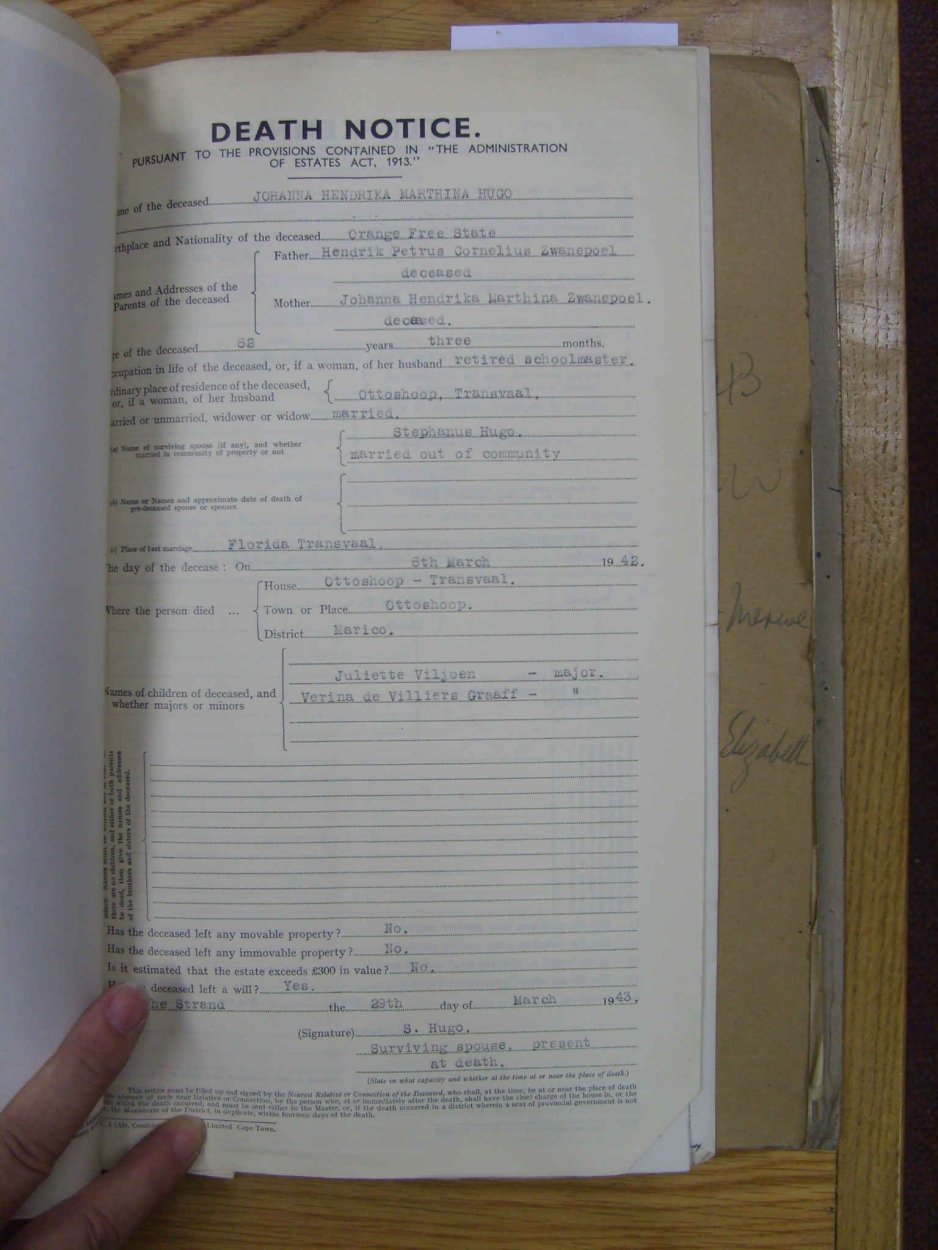 DEATH NOTICE.
PURSUANT TO THE PROVISIONS CONTAINED IN "THE ADMINISTRATION
OF ESTATES ACT, 1913."
me of the deceased JOHANNA HENDRIKA MARTHINA HUGO
rthplace and Nationality of the deceased Orange Free State
Father Hendrik Petrus Cornelius Zwanepoel
deceased
ames and Addresses of the
Parents of the deceased
Mother Johanna Hendrika Marthina Zwanepoel.
deceased.
ge of the deceased years three months.
ccupation in life of the deceased, or, if a woman, of her husband retired schoolmaster.
rdinary place of residence of the deceased,
or, if a woman, of her husband Ottoshoop, Transvaal.
arried or unmarried, widower or widow married.
(a) Name of surviving spouse (if any), and whether
married in community of property or not
Stephanus Hugo.
married out of community
(b) Name or Names and approximate date of death of
pre-deceased spouse or spouses
(c) Place of last marriage Florida Transvaal.
The day of the decease: On March 1942.
House Ottoshoop - Transvaal.
Where the person died ... Town or Place Ottoshoop.
District Marico.
Names of children of deceased, and
whether majors or minors
Juliette Viljoen - major.
Verina de Villiers Graaff - "
there are no children, and either or both parents
be dead, then give the names and addresses
of the brothers and sisters of the deceased.
Has the deceased left any movable property? No.
Has the deceased left any immovable property? No.
Is it estimated that the estate exceeds £300 in value? No.
deceased left a will? Yes.
he Strand the 29th day of March 1943.
(Signature) S. Hugo.
Surviving spouse, present
at death.
(State in what capacity and whether at the time at or near the place of death.)
This notice must be filled up and signed by the Nearest Relative or Connection of the Deceased, who shall, at the time, be at or near the place of death
the absence of such near Relative or Connection, by the person who, at or immediately after the death, shall have the chief charge of the house in, or the
on, which the death occurred, and must be sent either to the Master, or, if the death occurred in a district wherein a seat of provincial government is not
the Magistrate of the District, in duplicate, within fourteen days of the death.
Limited Cape Town.
43
W
Merwe
Elizabeth